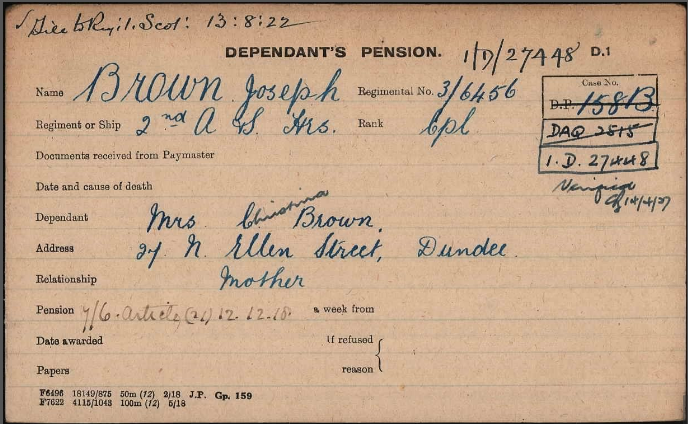 File to Reg'l. Scot: 13:8:22
DEPENDANT'S PENSION. 1/D/27448 D.1
Name Brown Joseph Regimental No. 3/6456
Case No.
D.P. 15813
Regiment or Ship 2nd A & S. Hrs. Rank Cpl
DAQ 2515
Documents received from Paymaster
1. D. 27448
Date and cause of death
Verified
14/4/27
Dependant Mrs Christina Brown,
Address 27 N. Ellen Street, Dundee.
Relationship Mother
Pension 7/6. Article (21) 12. 12. 18 a week from
Date awarded If refused
Papers reason
F6496 18149/875 50m (12) 2/18 J.P. Gp. 159
F7622 4115/1043 100m (12) 5/18